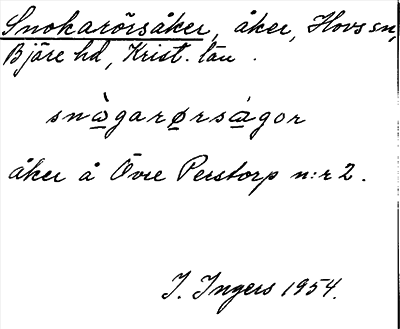 Snokarörsåker, åker, Hovs sn,
Bjäre hd, Krist. län.
snàgarørságor
åker å Övre Perstorp n:r 2.
I. Ingers 1954.